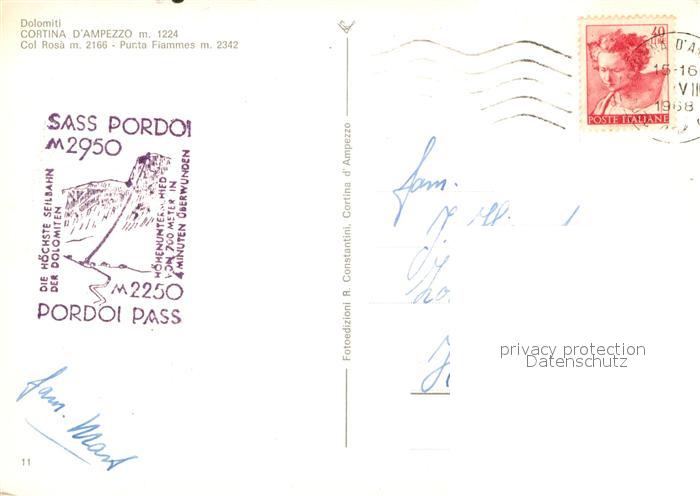 Dolomiti
CORTINA D'AMPEZZO m. 1224
Col Rosà m. 2166 - Punta Fiammes m. 2342
40
15-16
VII
1968
POSTE ITALIANE
SASS PORDOI
M2950
DIE HÖCHSTE SEILBAHN
DER DOLOMITEN
HÖHENUNTERSCHIED
VON 700 METER IN
4 MINUTEN ÜBERWUNDEN
M2250
PORDOI PASS
Fotoedizioni R. Constantini, Cortina d'Ampezzo
fam.
privacy protection
Datenschutz
fam.
11